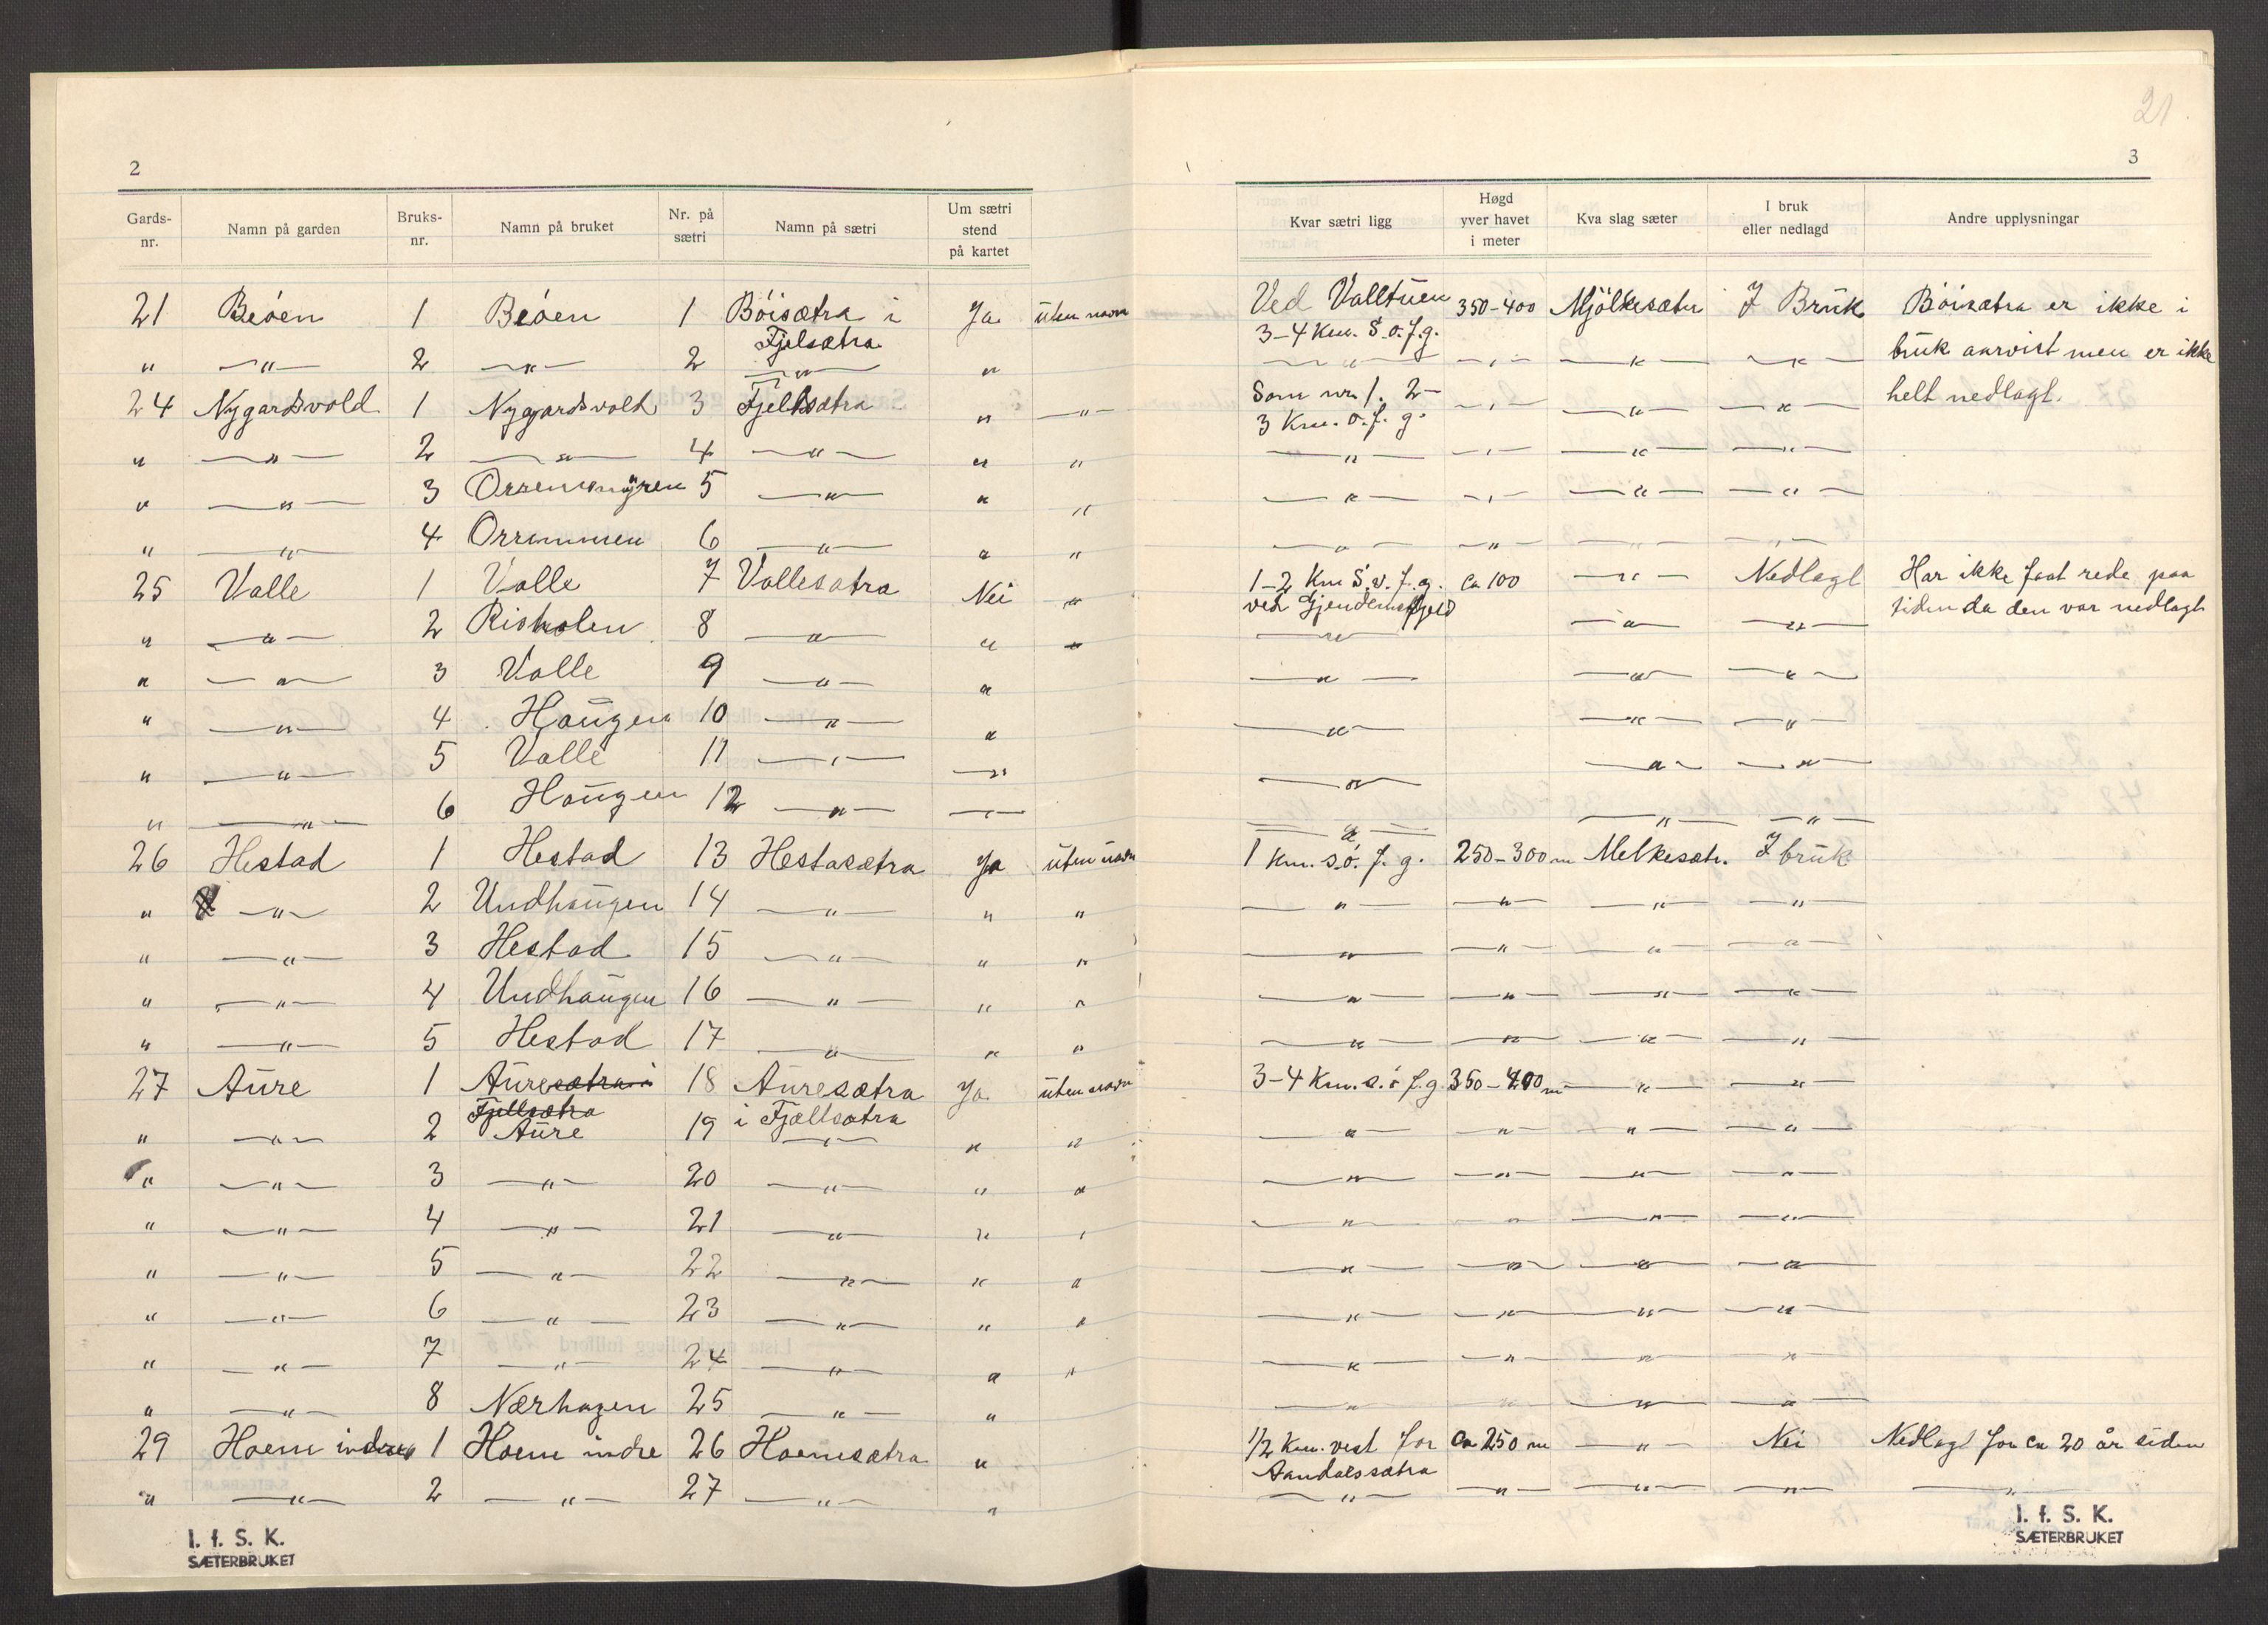 21
2
3
Gards-nr. Namn på garden Bruks-nr. Namn på bruket Nr. på sætri Namn på sætri Um sætri stend på kartet
Kvar sætri ligg Høgd yver havet i meter Kva slag sæter I bruk eller nedlagd Andre upplysningar
21 Beöen 1 Beöen 1 Böisætra i Fjelsætra Ja uten navn Ved Valltuen 3-4 Km. S.ö.f.g. 350-400 Mjölkesæter I Brük Böisætra er ikke i
" —"— 2 —"— 2 —"— " —"— —"— —"— —"— brük aarvist men er ikke
24 Nygardsvold 1 Nygardsvold 3 Fjellsætra " —"— Som nr. 1. 2-3 Km. ö.f.g. —"— —"— —"— helt nedlagt.
" —"— 2 —"— 4 —"— " " —"— —"— —"— —"—
" —"— 3 5 —"— " " —"— —"— —"— —"—
" —"— 4 Orremmen 6 —"— " " —"— —"— —"— —"—
25 Valle 1 Valle 7 Vallesætra Nei " 1-2 Km S.v.f.g. ved Gjendemsfjeld ca 100 —"— Nedlagt Har ikke faat rede paa
" —"— 2 Risholen 8 —"— " " —"— —"— —"— tiden da den var nedlagt
" —"— 3 Valle 9 —"— " —"— —"— —"—
" —"— 4 Haügen 10 —"— " —"— —"— —"—
" —"— 5 Valle 11 —"— —"— —"— —"— —"—
" —"— 6 Haügen 12 —"— —"— —"— —"— —"—
26 Hestad 1 Hestad 13 Hestasætra Ja üten navn 1 Km. s.ö. f. g. 250-300 m Melkesæt. I brük
" —"— 2 Undhaügen 14 —"— " " —"— —"— —"— —"—
" —"— 3 Hestad 15 —"— " " —"— —"— —"— —"—
" —"— 4 Undhaügen 16 —"— " " —"— —"— —"— —"—
" —"— 5 Hestad 17 —"— " " —"— —"— —"— —"—
27 Aüre 1 Aüresætra i Fjellsætra 18 Aüresætra i Fjællsætra Ja üten navn 3-4 Km. s.ö f.g. 350-400 m —"— —"—
" —"— 2 Aüre 19 —"— " " —"— —"— —"— —"—
" —"— 3 —"— 20 —"— " " —"— —"— —"— —"—
" —"— 4 —"— 21 —"— " " —"— —"— —"— —"—
" —"— 5 —"— 22 —"— " " —"— —"— —"— —"—
" —"— 6 —"— 23 —"— " " —"— —"— —"— —"—
" —"— 7 —"— 24 —"— " " —"— —"— —"— —"—
" —"— 8 Nærhagen 25 —"— " —"— —"— —"— —"—
29 Hoem indre 1 Hoem indre 26 Hoemsætra " 1/2 Km. vest for Aandalssætra Ca 250 m —"— Nei Nedlagt for ca 20 år siden
" —"— 2 —"— 27 —"— " —"— —"— —"— —"— —"—
I. f. S. K.
SÆTERBRUKET
I. f. S. K.
SÆTERBRUKET